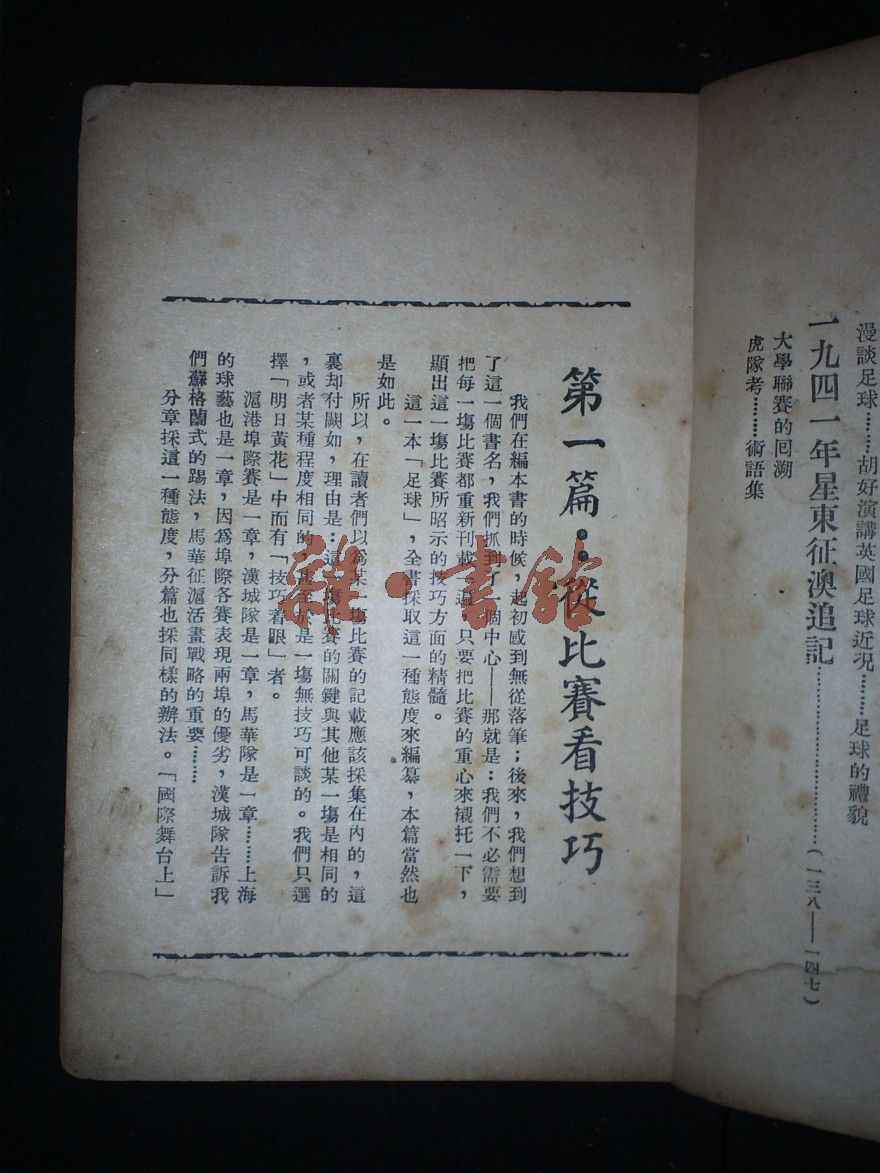 漫談足球………胡好演講英國足球近況………足球的禮貌
一九四一年星東征澳追記……………………(一三八——一四七)
大學聯賽的回溯
虎隊考………術語集
第一篇：從比賽看技巧
我們在編本書的時候，起初感到無從落筆；後來，我們想到
了這一個書名，我們抓到了一個中心——那就是：我們不必需要
把每一塲比賽都重新刊載一過，只要把比賽的重心來襯托一下，
顯出這一塲比賽所昭示的技巧方面的精髓。
這一本「足球」，全書採取這一種態度來編纂，本篇當然也
是如此。
所以，在讀者們以爲某一塲比賽的記載應該採集在內的，這
裏却付闕如，理由是：這一塲比賽的關鍵與其他某一塲是相同的
，或者某種程度相同的，甚至於是一塲無技巧可談的。我們只選
擇「明日黃花」中而有「技巧着眼」者。
滬港埠際賽是一章，漢城隊是一章，馬華隊是一章………上海
的球藝也是一章，因爲埠際各賽表現兩埠的優劣，漢城隊告訴我
們蘇格蘭式的踢法，馬華征滬活畫戰略的重要………
分章採這一種態度，分篇也採同樣的辦法。「國際舞台上」
雜·書館